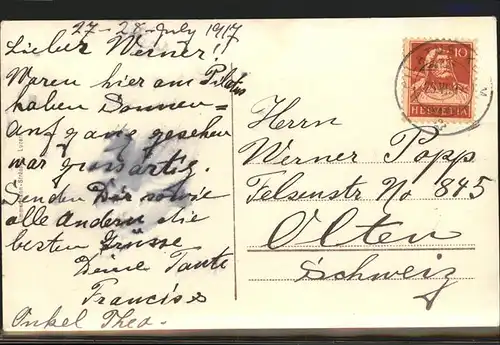 27-28-July 1917
Lieber Werner!
Waren hier am Pilatus
haben Sonnen-
aufgang gesehen
war grossartig.
Senden Dir sowie
alle Andern die
besten Grüsse
Deine Tante
Francisca
Onkel Theo.
10
HELVETIA
Herrn
Werner Popp
Felsenstr No 845
Olten
Schweiz